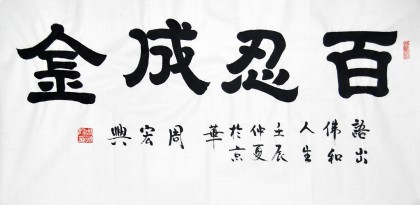 百忍成金
語出
佛和
人生
壬辰
仲夏
於京
華
周
宏
興